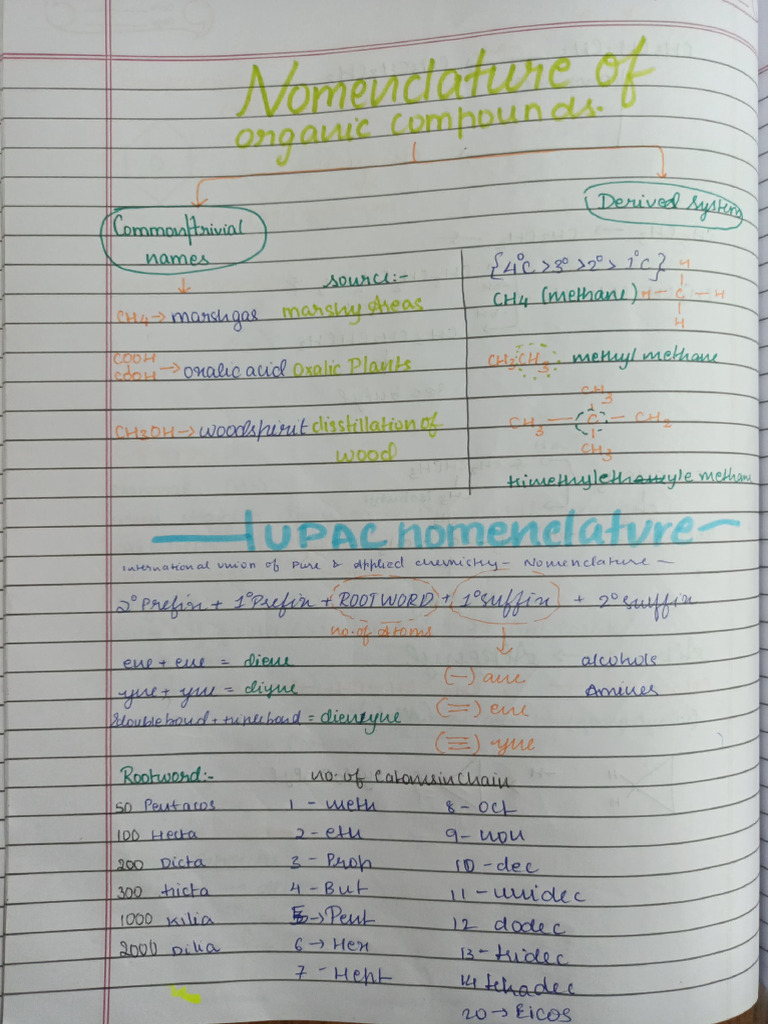 Nomenclature of
organic compounds.
Common/trivial
names
Derived System
source:-
CH4 → marshgas marshy areas
COOH
COOH → oxalic acid Oxalic Plants
CH3OH → woodspirit disstillation of
wood
{4°C >3° >2° > 1°C}
CH4 (methane)
H
H - C - H
H
CH3CH3 methyl methane
CH3
CH3 - C - CH2
CH3
IUPAC nomenclature
International union of Pure & Applied chemistry - Nomenclature -
2° Prefix + 1° Prefix + ROOTWORD + 1° suffix + 2° suffix
no. of atoms
ene + ene = diene
yne + yne = diyne
2double bond + triple bond = dienzyne
(-) ane
(=) ene
(≡) yne
alcohols
Amines
Rootword:- no. of C atoms in chain
50 Pentacos
100 Hecta
200 Dicta
300 tricta
1000 Kilia
2000 Dilia
1 - meth
2 - eth
3 - Prop
4 - But
5 → Pent
6 → Hex
7 - Hept
8 - Oct
9 - non
10 - dec
11 - unidec
12 dodec
13 - tridec
14 tetradec
20 → Eicos